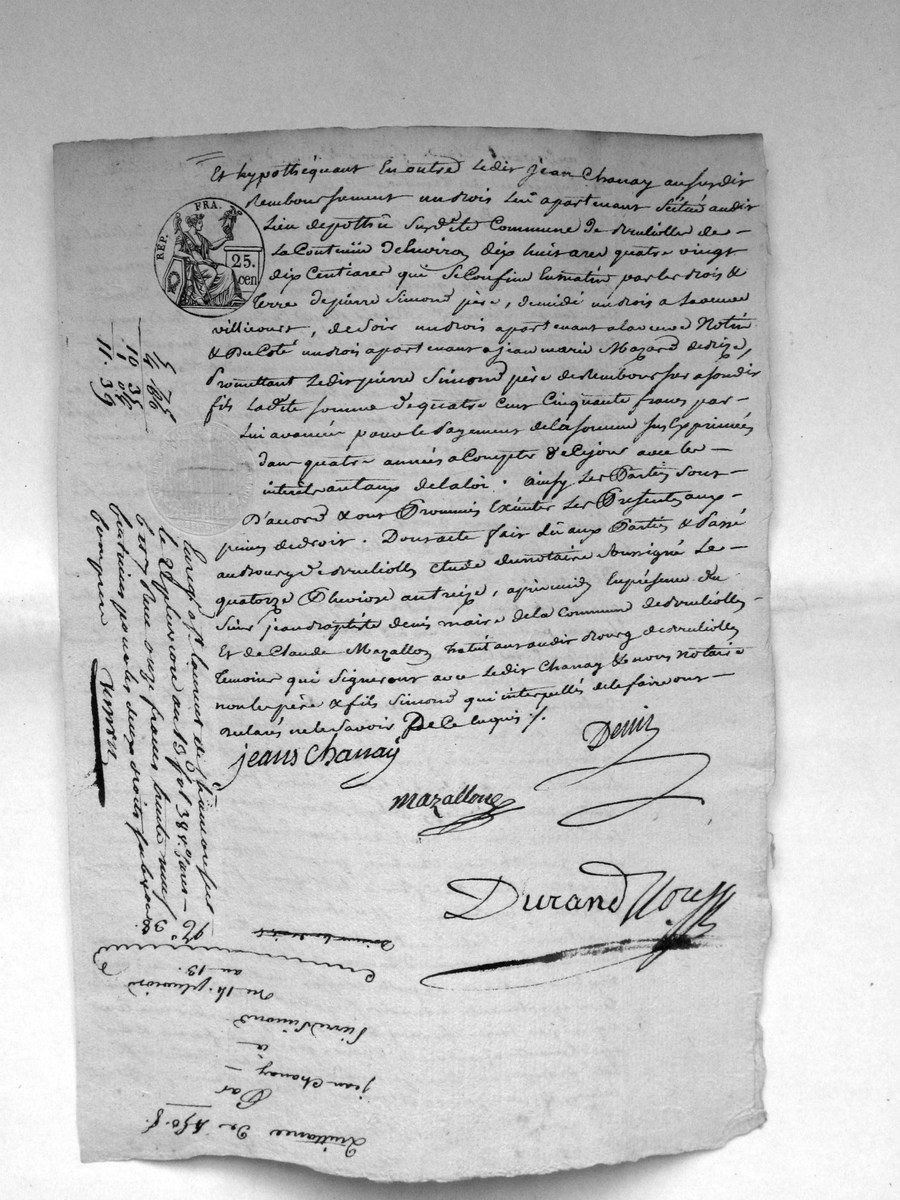 Et hypothéquant En outre Ledit jean Chanay au susdit
Remboursement un bois Lui apartenant Scitué audit
Lieu de pothu Susdte Commune de Brulliolles de
La Contenüe d'Environ dix huit ares quatre vingt
dix Centiares qui Se Confine En matin par les bois &
Terre de pierre Simond père, de midi un bois a
villicourt, de Soir un bois apartenant a
& Du Coté un bois apartenant a jean marie Mazard
Promettant Ledit pierre Simond père de Rembourser a son dit
fils Ladte Somme de quatre Cent Cinquante francs par
Lui avancée pour le Payement de la Somme Sus Exprimée
dans quatre années a Compter de Ce jour avec les
interets au taux de la loi. ainsy Les Parties Sont
D'accord & ont Promis Exécuter Les Présentes aux
peines de droit. Dont acte fait Lû aux Parties & Passé
au Bourg de Brulliolles Etude du notaire Soussigné Le
quatorze Pluviose an treize, après midi En présence du
Sieur jean Baptiste denis maire de la Commune de Brulliolles
Et de Claude Mazallon habitant audit Bourg de Brulliolles
Temoins qui Signeront avec Ledit Chanay & nous notaire
non les père & fils Simond qui interpellés de le faire ont
Declarés ne le Savoir De Ce Enquis ./.
jeans Chanaÿ
Denis
mazallon
Durand
REP. FRA.
25.
cen
10 35
1 04
11. 39
Enregé a St laurent de
le 28 pluviose an 13 fol 38
Reçu onze francs trente neuf
centimes pour les deux droits
Quittance De 450 f.
Par
jean Chanay
à
Pierre Simond
Du 14. pluviose
an 13.